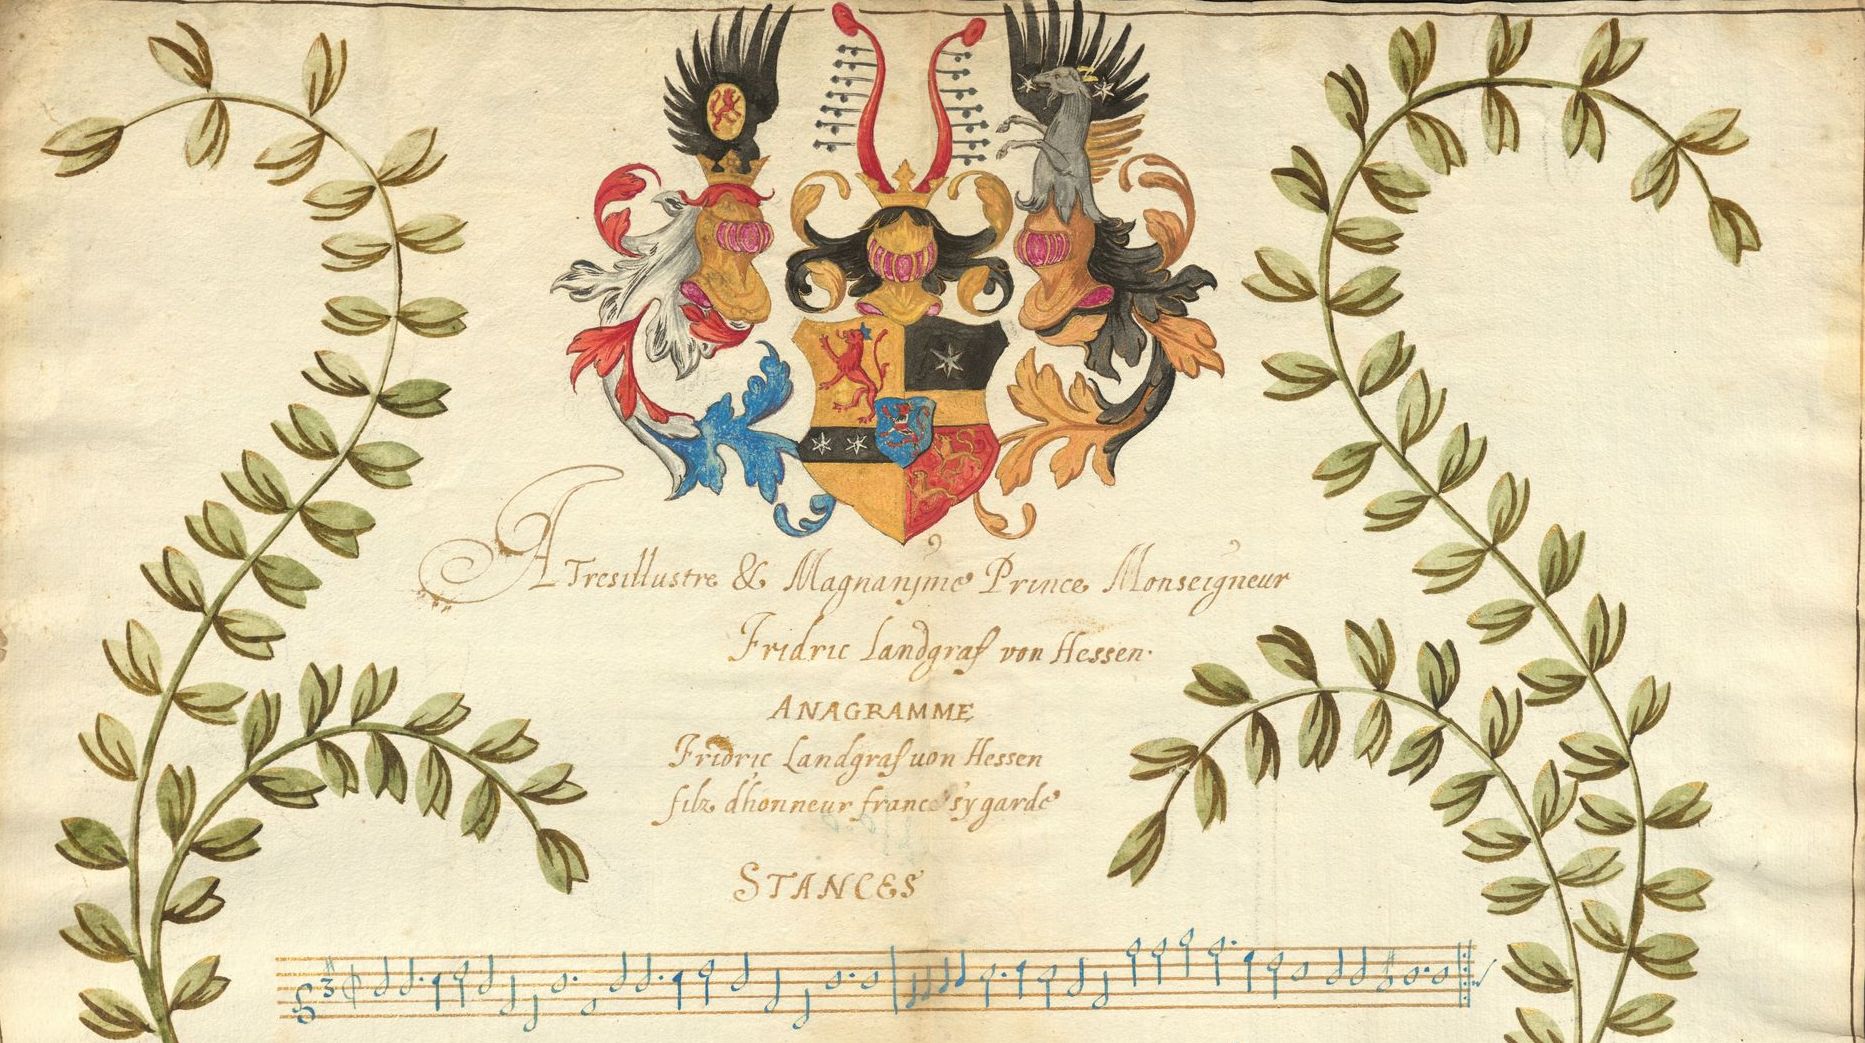 A Tresillustre & Magnanjme Prince Monseigneur
Fridric Landgraf von Hessen.
ANAGRAMME
Fridric Landgraf uon Hessen
filz dhonneur france sy garde
STANCES